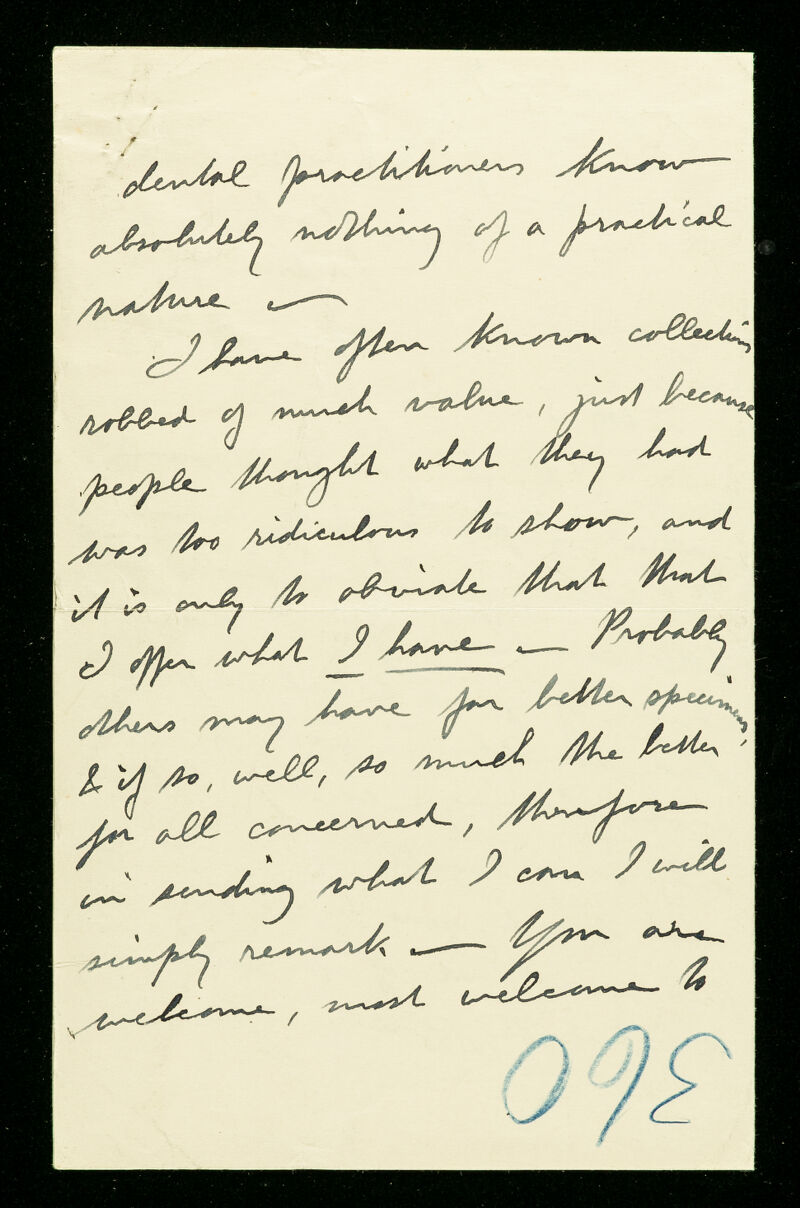 dental practitioners know
absolutely nothing of a practical
nature —
I have often known collections
robbed of much value, just because
people thought what they had
was too ridiculous to show, and
it is only to obviate that that
I offer what I have — Probably
others may have far better specimens,
& if so, well, so much the better
for all concerned, therefore
in sending what I can I will
simply remark — You are
welcome, most welcome to
360